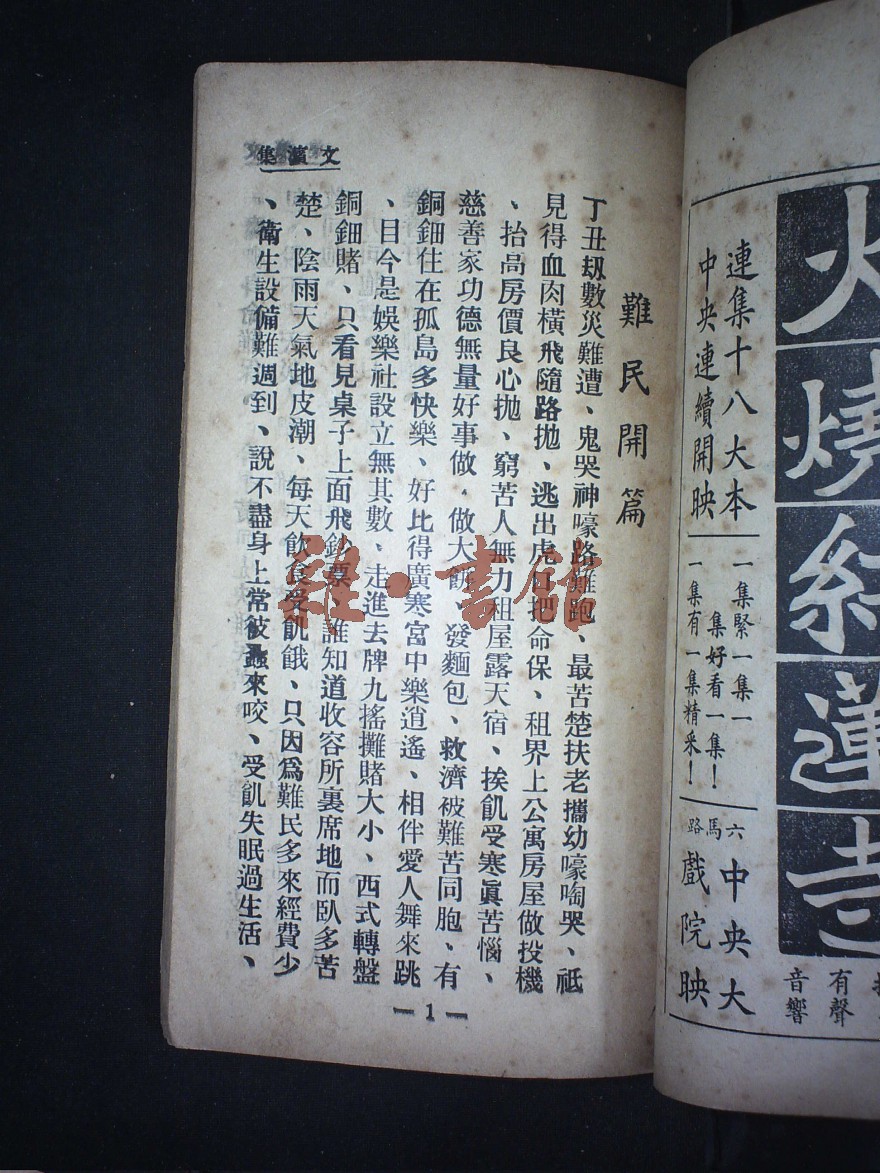 火燒紅蓮寺
有聲
音響
連集十八大本
中央連續開映
一集緊一集一
集好看一集！
一集有一集精采！
六馬路
中央大
戲院映
文濱集
難民開篇
丁丑刼數災難遭、鬼哭神嚎路難跑、最苦楚扶老攜幼嚎啕哭、祗
見得血肉橫飛隨路拋、逃出虎口把命保、租界上公寓房屋做投機
、抬高房價良心拋、窮苦人無力租屋露天宿、挨飢受寒眞苦惱、
慈善家功德無量好事做．做大餅、發麵包、救濟被難苦同胞、有
銅鈿住在孤島多快樂、好比得廣寒宮中樂逍遙、相伴愛人舞來跳
、目今是娛樂社設立無其數、走進去牌九搖攤賭大小、西式轉盤
銅鈿賭、只看見桌子上面飛鈔票、誰知道收容所裏席地而臥多苦
楚、陰雨天氣地皮潮、每天飲食受飢餓、只因爲難民多來經費少
、衛生設備難週到、說不盡身上常彼蟲來咬、受飢失眠過生活、
— 1 —
雜·書館